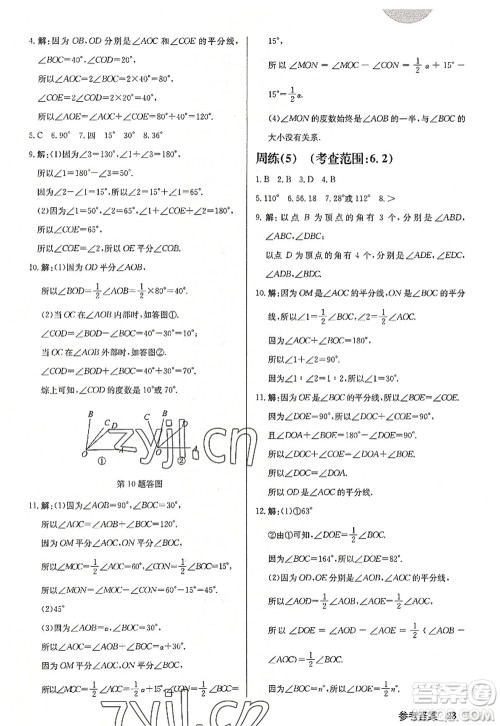 4.解:因为 OB、OD 分别是∠AOC 和∠COE 的平分线,
∠BOC=40°,∠COD=20°,
所以∠AOC=2∠BOC=2×40°=80°,
∠COE=2∠COD=2×20°=40°,
所以∠AOE=∠AOC+∠COE=80°+40°=120°.
5.C 6.90° 7.四 30° 8.36°
9.解:(1)因为∠3=90°,∠2=15°,
所以∠1=90°-∠2-∠3=15°,
所以∠1=∠2=15°,
所以 OE 平分∠COB.
10.解:(1)因为 OD 平分∠AOB,
所以∠BOD=1/2∠AOB=1/2×40°=20°.
(2)当 OC 在∠AOB 内部时,如答图①,
∠COD=∠BOD-∠BOC=20°-10°=10°;
当 OC 在∠AOB 外部时,如答图②,
∠COD=∠AOB+∠BOC=40°+30°=70°.
综上可知,∠COD 的度数是 10°或 70°.
B
C
D
O
A
①
②
第 10 题答图
11.解:(1)因为∠AOB=90°,∠BOC=30°,
所以∠AOC=∠AOB+∠BOC=120°.
因为 OM 平分∠AOC,ON 平分∠BOC,
所以∠MOC=1/2∠AOC=60°,∠CON=1/2∠BOC=15°,
所以∠MON=∠MOC-∠CON=60°-15°=45°.
(2)45°
(3)因为∠AOB=α,∠BOC=30°,
所以∠AOC=∠AOB+∠BOC=α+30°.
因为 OM 平分∠AOC,ON 平分∠BOC,
所以∠MOC=1/2∠AOC=1/2α+15°,∠CON=1/2∠BOC=15°,
所以∠MON=∠MOC-∠CON=1/2α+15°-
15°=1/2α.
(4)∠MON 的度数始终是∠AOB 的一半,与∠BOC 的
大小没有关系.
周练(5) (考查范围:6.2)
1.B 2.B 3.D 4.B
5.110° 6.56.18 7.28°或112° 8.>
9.解:以点 B 为顶点的角有 3 个,分别是∠ABD,
∠ABC,∠DBC;
以点 D 为顶点的角有 4 个,分别是∠ADE,
∠EDC,∠ADB,∠BDC.
10.解:因为 OM 是∠AOC 的平分线,ON 是∠BOC 的平
分线,
所以∠1=1/2∠AOC,∠2=1/2∠BOC.
因为∠AOC+∠BOC=180°,
所以∠1+∠2=90°.
11.解:因为 OC 是∠BOE 的平分线,所以∠BOC=∠COE.
因为∠DOE+∠COE=90°,
且∠DOA+∠DOE+∠COE+∠BOC=180°,
所以∠DOA+∠BOC=90°,所以∠DOA=∠DOE,
所以 OD 是∠AOE 的平分线.
12.解:(1)①63°
②由①可知,∠DOE=1/2∠BOC.
因为∠BOC=164°,所以∠DOE=82°.
(2)因为 OD、OE 分别是∠AOC 和∠AOB 的平分线,
所以∠DOA=1/2∠AOC,∠AOE=1/2∠AOB,
所以∠DOE=1/2∠BOC.
因为∠BOC=n°,所以∠DOE=1/2n°.
zyjl.cn
zyjl.cn
参考答案 23